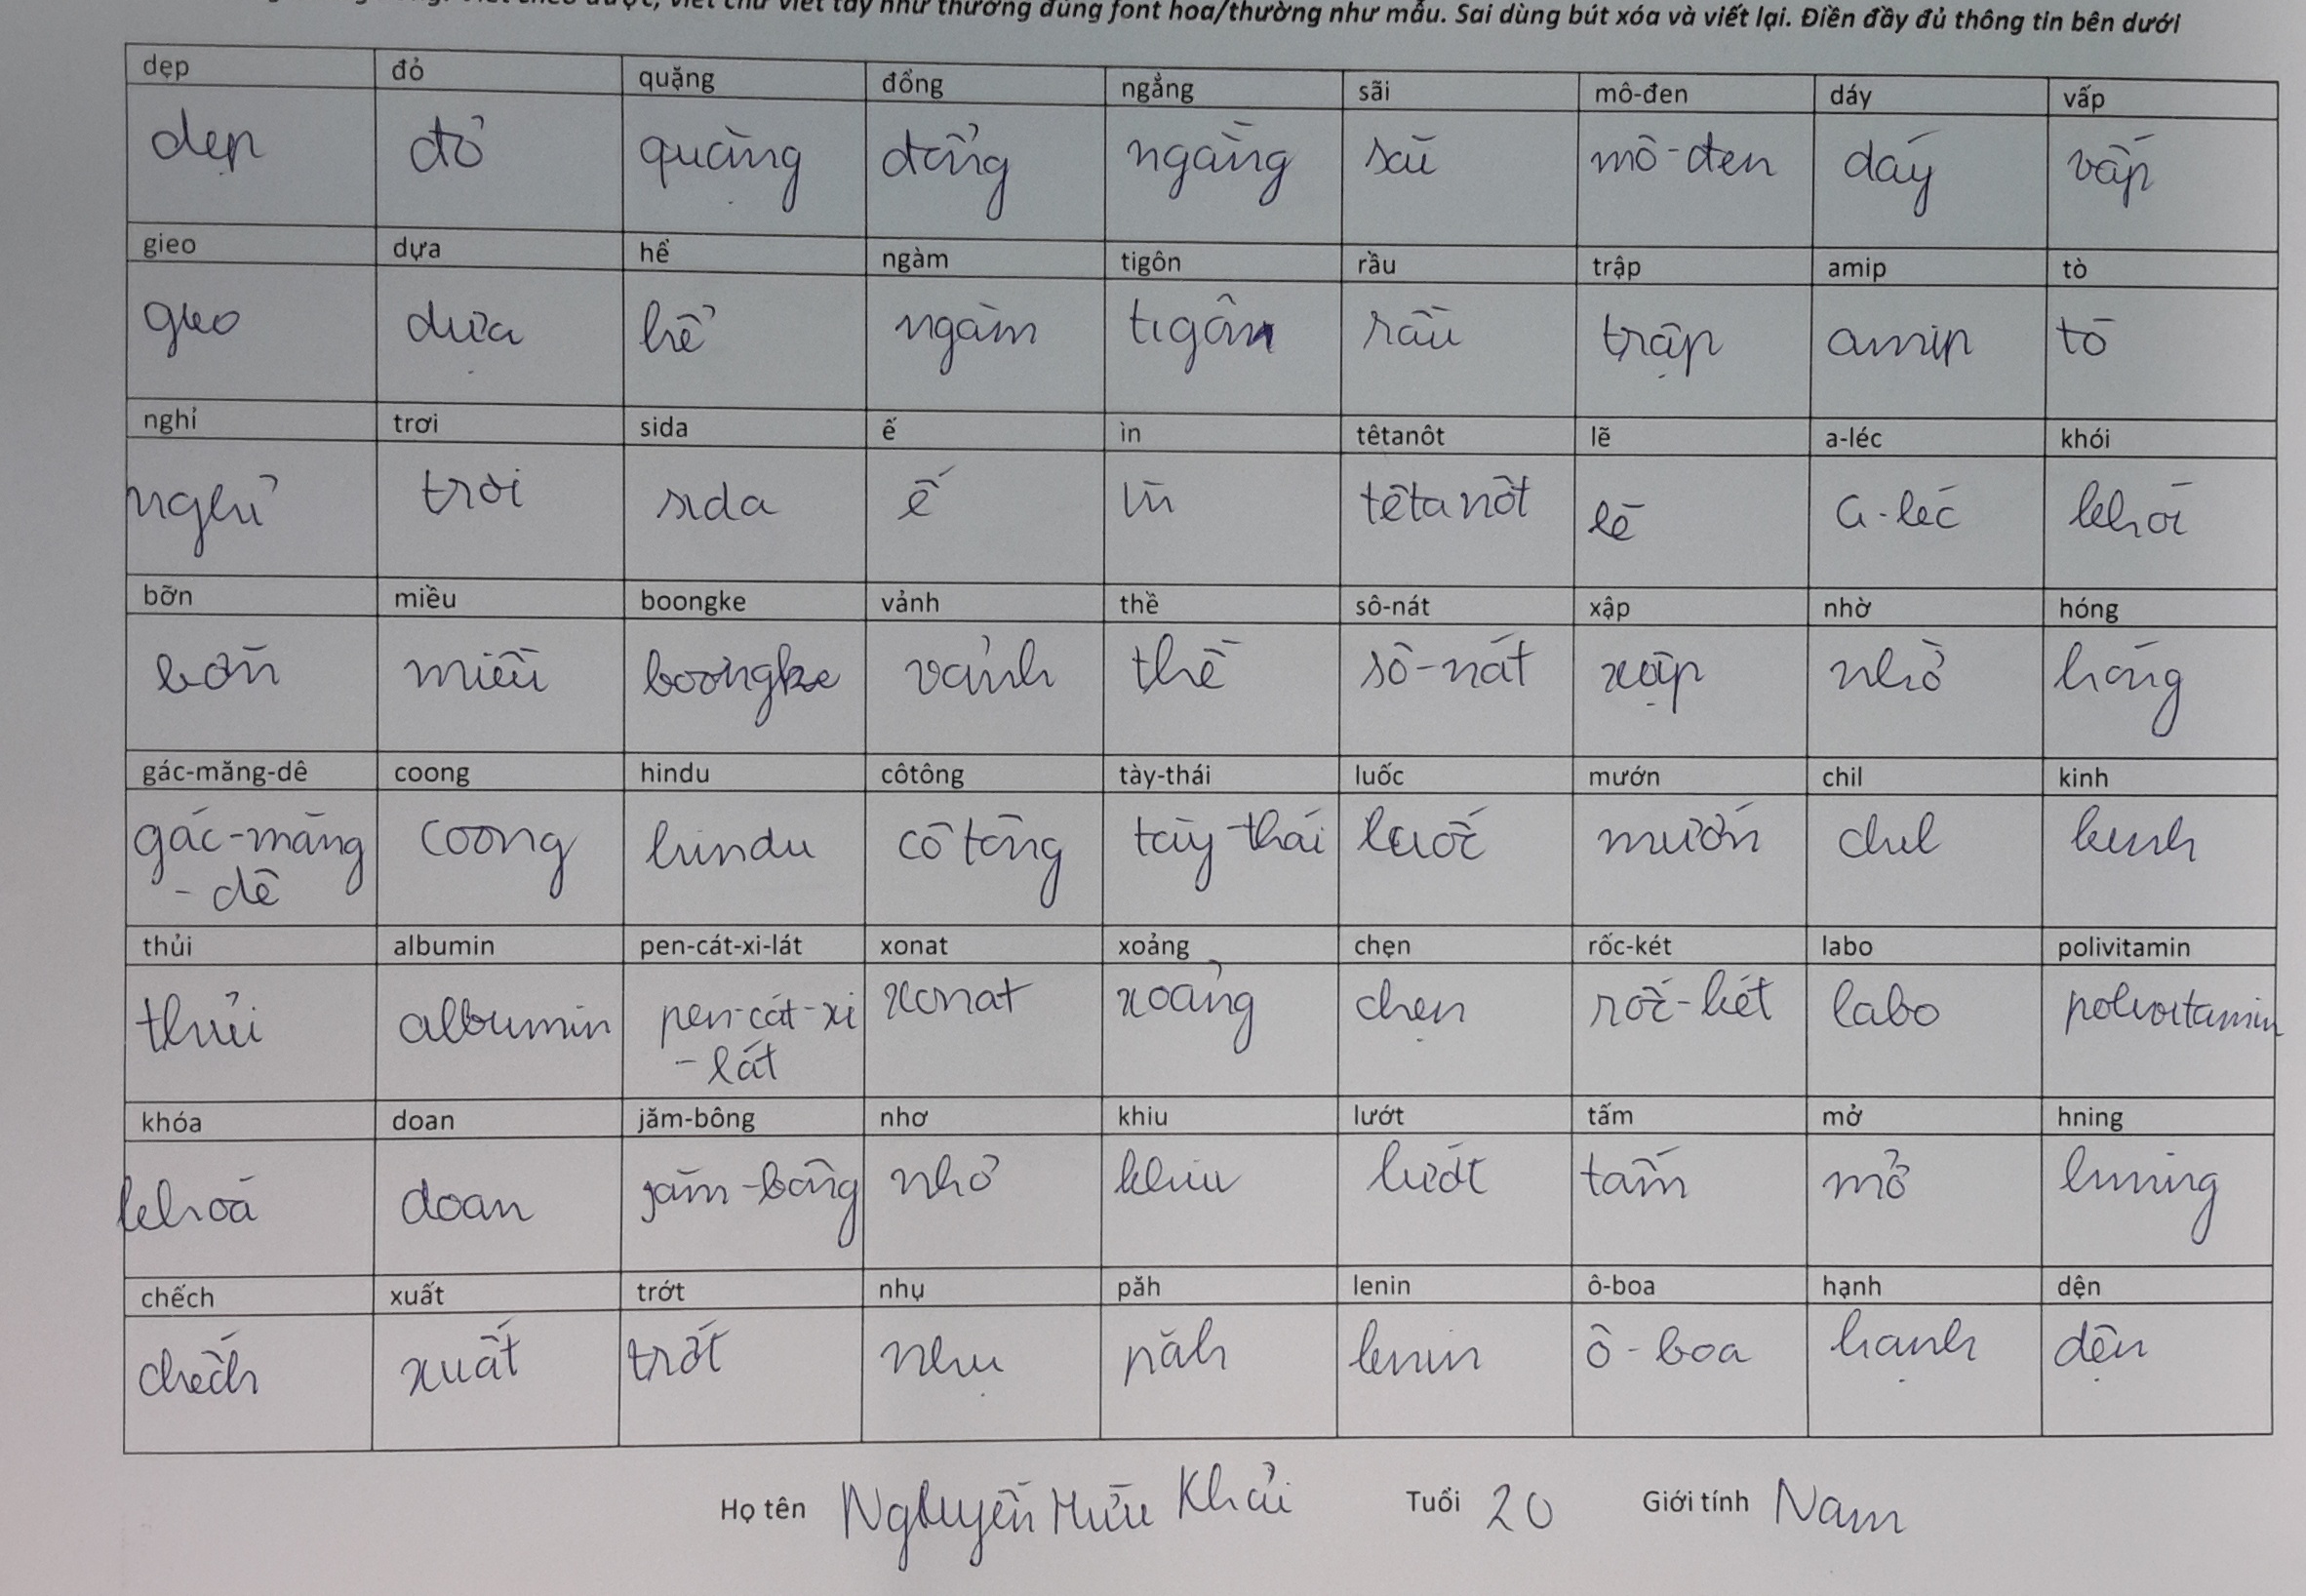 viết chữ viết tay như thường đúng font hoa/thường như mẫu. Sai dùng bút xóa và viết lại. Điền đầy đủ thông tin bên dưới
dẹp đỏ quặng đổng ngẳng sãi mô-đen dáy vấp
dẹp đỏ quặng đổng ngẳng sãi mô-đen dáy vấp
gieo dựa hể ngàm tigôn rầu trập amip tò
gieo dựa hể ngàm tigôn rầu trập amip tò
nghỉ trơi sida ế ìn têtanôt lẽ a-léc khói
nghỉ trơi sida ế ìn têtanôt lẽ a-léc khói
bỡn miều boongke vảnh thề sô-nát xập nhờ hóng
bỡn miều boongke vảnh thề sô-nát xập nhờ hóng
gác-măng-dê coong hindu côtông tày-thái luốc mướn chil kinh
gác-măng coong hindu côtông tày-thái luốc mướn chil kinh
-dê
thủi albumin pen-cát-xi-lát xonat xoảng chẹn rốc-két labo polivitamin
thủi albumin pen-cát-xi xonat xoảng chẹn rốc-két labo polivitamin
-lát
khóa doan jăm-bông nhơ khiu lướt tấm mở hning
khoá doan jăm-bông nhơ khiu lướt tấm mở hning
chếch xuất trớt nhụ păh lenin ô-boa hạnh dện
chếch xuất trớt nhụ păh lenin ô-boa hạnh dện
Họ tên Nguyễn Hữu Khải Tuổi 20 Giới tính Nam